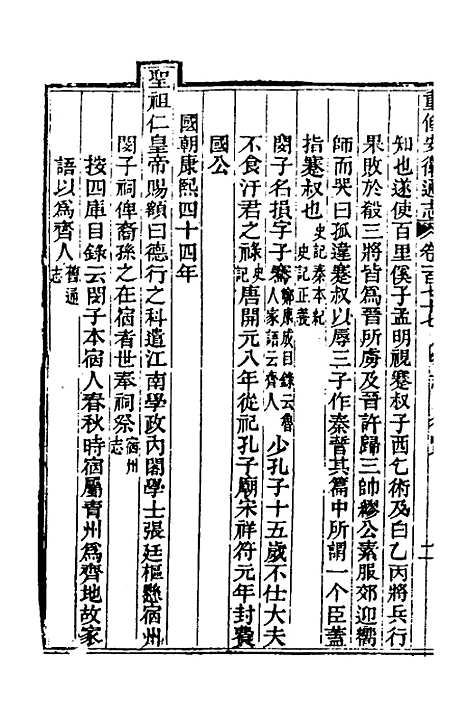 重修安徽通志 卷一百七十七
知也遂使百里傒子孟明視蹇叔子西乞術及白乙丙將兵行
果敗於殽三將皆為晉所虜及晉許歸三帥繆公素服郊迎嚮
師而哭曰孤違蹇叔以辱三子作秦晉其篇中所謂一个臣蓋
指蹇叔也史記秦本紀史記正義
閔子名損字子騫鄭康成目錄云魯人家語云齊人少孔子十五歲不仕大夫
不食汙君之祿史記唐開元八年從祀孔子廟宋祥符元年封費
國公
國朝康熙四十四年
聖祖仁皇帝賜額曰德行之科遣江南學政內閣學士張廷樞懸宿州
閔子祠俾裔孫之在宿者世奉祠祭宿州志
按四庫目錄云閔子本宿人春秋時宿屬青州為齊地故家
語以為齊人舊通志